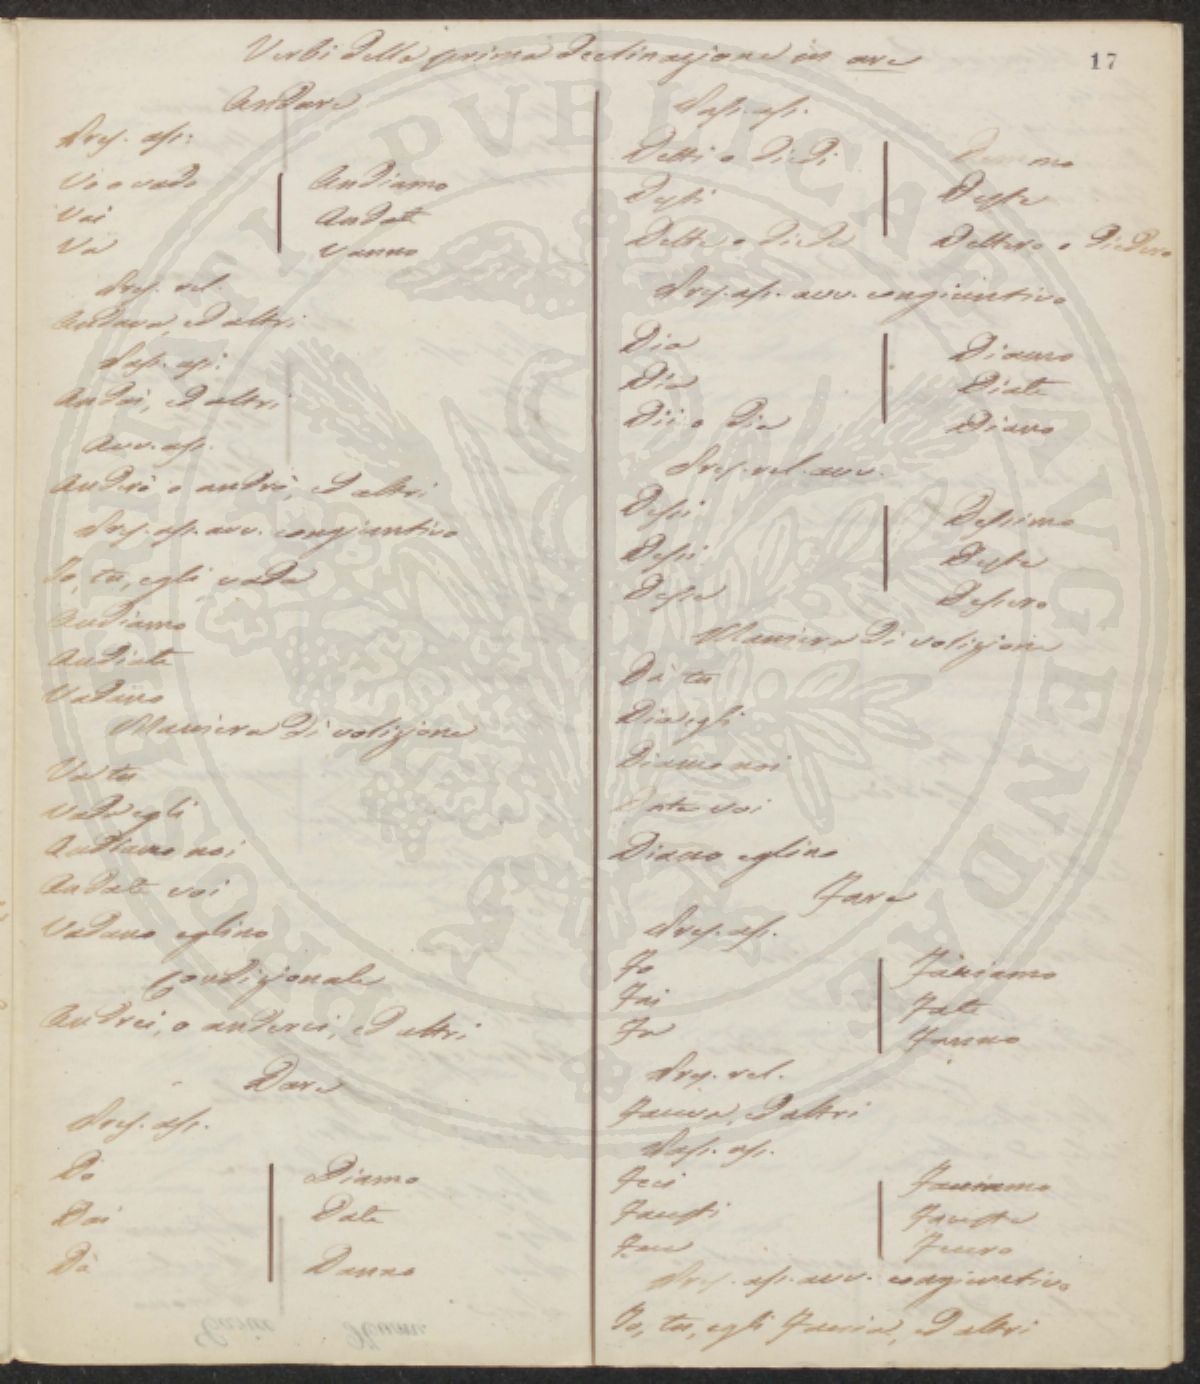 17
Verbi della prima declinazione in are
Andare
Pres. ass.
Vo o vado | Andiamo
Vai | Andate
Va | Vanno
Pres. rel.
Andava, ed altri
Pass. ass.
Andai, ed altri
Avv. ass.
Anderò o andrò, ed altri
Pres. ass. avv. congiuntivo
Io, tu, egli vada
Andiamo
Andiate
Vadano
Maniera di volizione
Va tu
Vada egli
Andiamo noi
Andate voi
Vadano eglino
Condizionale
Andrei, o anderei, ed altri
Dare
Pres. ass.
Do | Diamo
Dai | Date
Dà | Danno
Pass. ass.
Detti o diedi | Demmo
Desti | Deste
Dette o diede | Dettero o diedero
Pres. ass. avv. congiuntivo
Dia | Diamo
Dia | Diate
Dii o Dia | Diano
Pres. rel. avv.
Dessi | Dessimo
Dessi | Deste
Desse | Dessero
Maniera di volizione
Dà tu
Dia egli
Diamo noi
Date voi
Diano eglino
Fare
Pres. ass.
Fo | Facciamo
Fai | Fate
Fa | Fanno
Pres. rel.
Faceva, ed altri
Pass. ass.
Feci | Facemmo
Facesti | Faceste
Fece | Fecero
Pres. ass. avv. congiuntivo
Io, tu, egli Faccia, ed altri